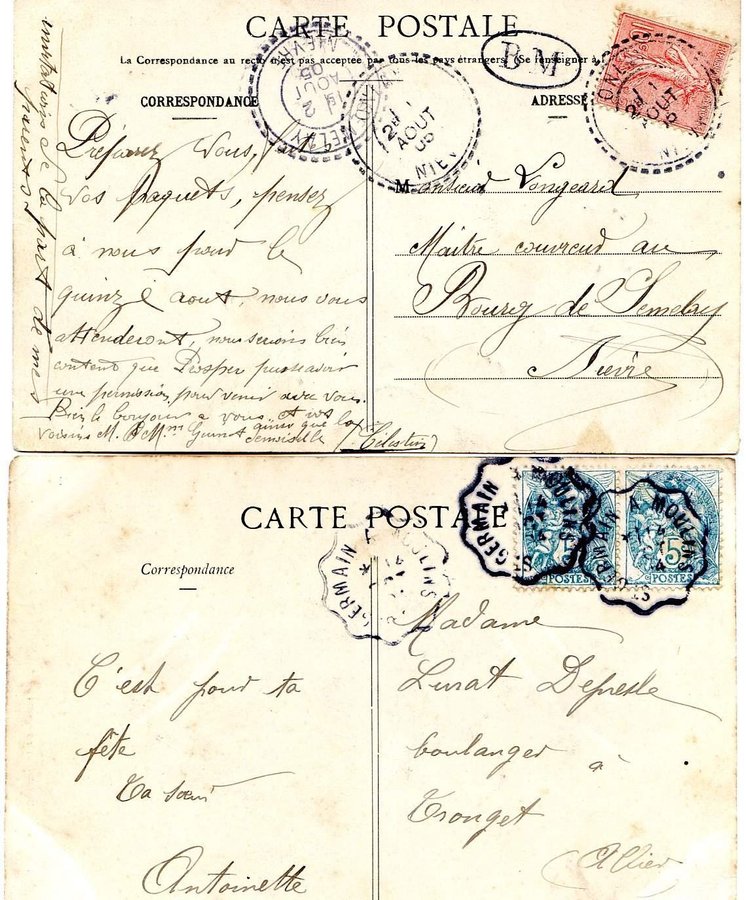 CARTE POSTALE
La Correspondance au recto n'est pas acceptée par tous les pays étrangers. Se renseigner à
CORRESPONDANCE
ADRESSE
BM
AOUT
05
NIÈVRE
2E
AOUT
05
NIÈV
2E
AOUT
NIÈ
invitation de la part de mes
parents.
Préparez vous,
vos paquets, pensez
à nous pour le
quinze aout, nous vous
attenderont, nous serions bien
content que Prosper puisse avoir
une permission pour venir avec vous.
Bien le bonjour a vous. A vos
voisins M. & Mme Guinot ainsi que la
demoiselle
(Célestin)
Monsieur Vongeard
Maitre couvreur au
Bourg de Semelay
Nièvre
CARTE POSTALE
Correspondance
ST GERMAIN A MOULINS
ST GERMAIN A MOULINS
ST GERMAIN A MOULINS
POSTES
5
POSTES
C'est pour ta
fête
Ta sœur
Antoinette
Madame
Lurat Depresle
boulanger à
Tronget
Allier